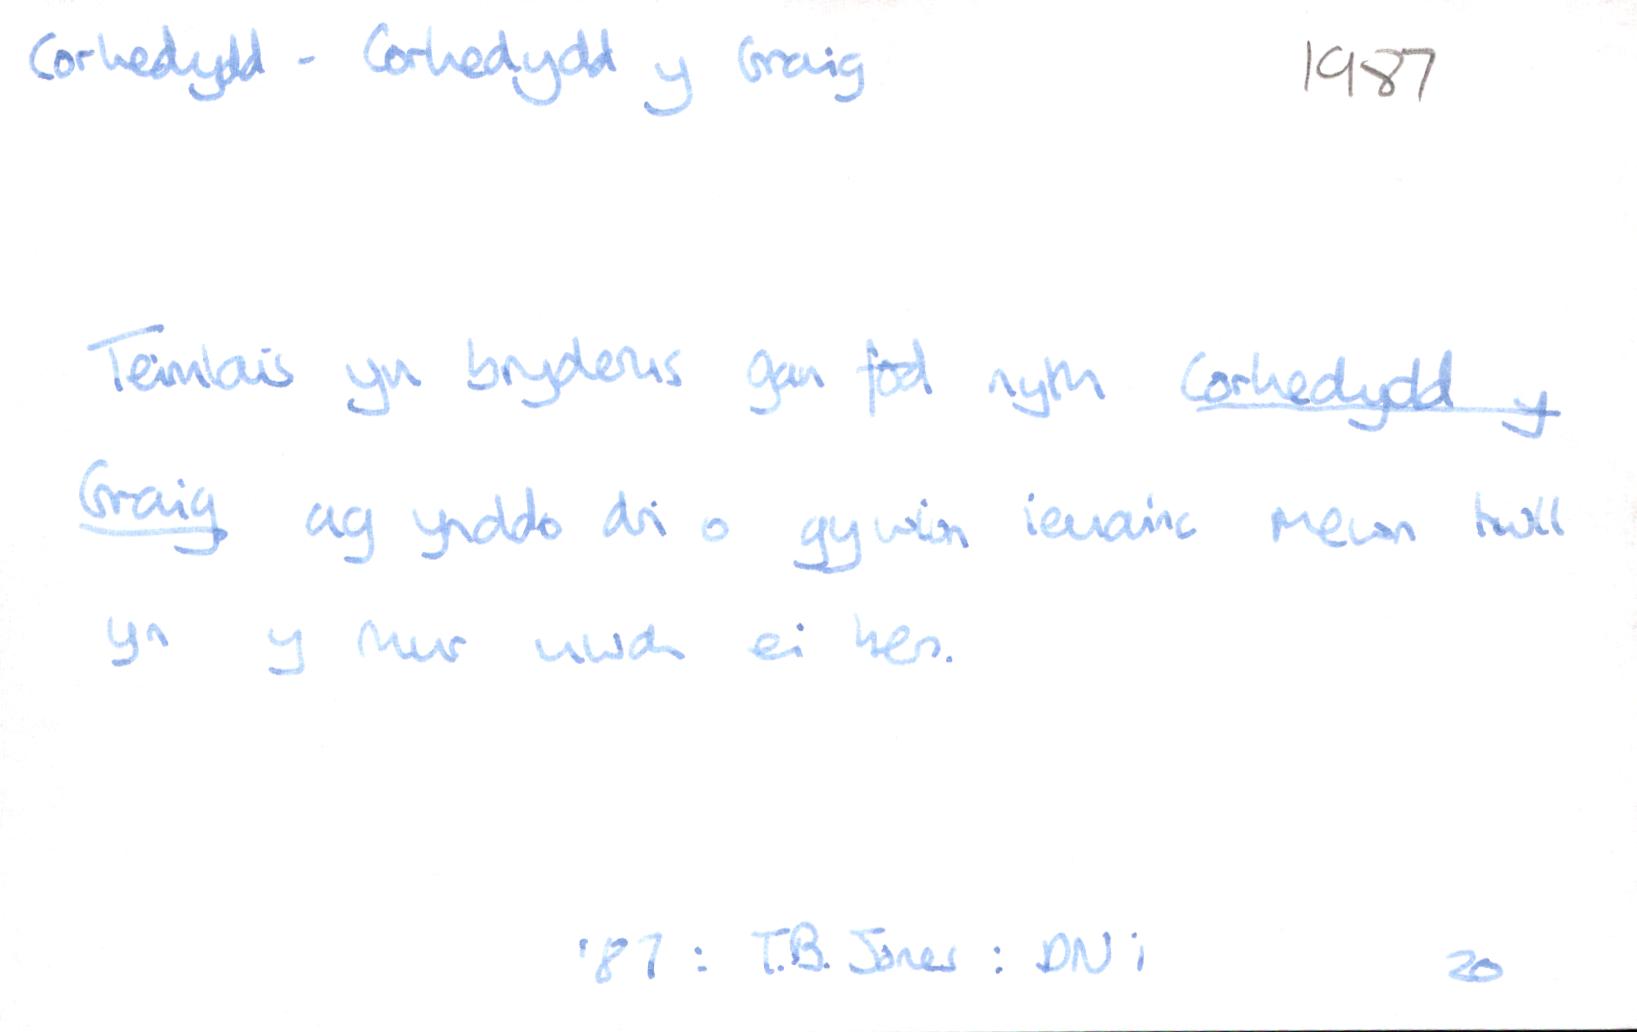 Corhedydd - Corhedydd y Graig 1987
Teimlais yn bryderus gan fod nyth Corhedydd y
Graig ag ynddo dri o gywion ieuainc mewn twll
yn y mur uwch ei ben.
'87 : T.B. Jones : DN i 20